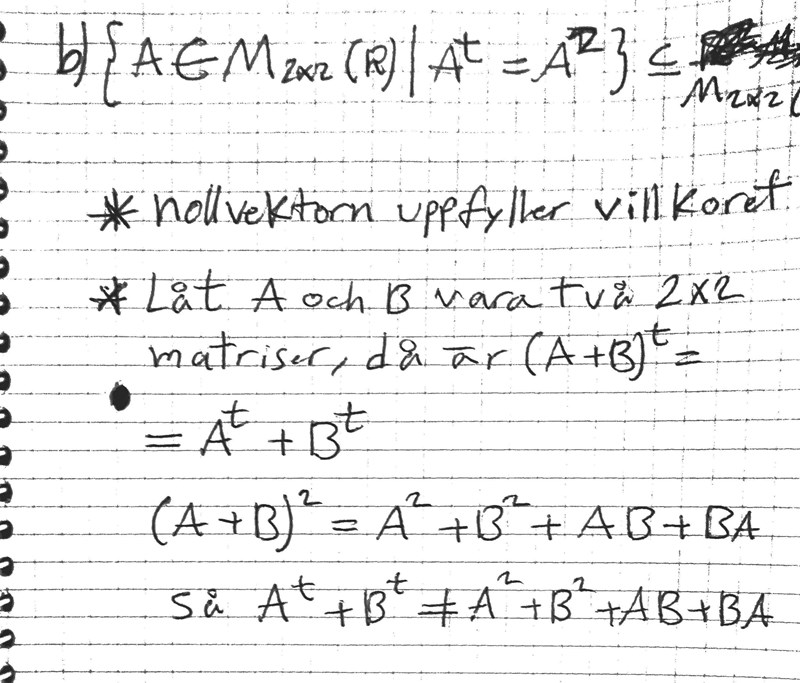 b) {A ∈ M₂ₓ₂(R) | Aᵗ = A²} ⊆
M₂ₓ₂(
* nollvektorn uppfyller villkoret
* Låt A och B vara två 2x2
matriser, då är (A+B)ᵗ =
= Aᵗ + Bᵗ
(A+B)² = A² + B² + AB + BA
så Aᵗ + Bᵗ ≠ A² + B² + AB + BA